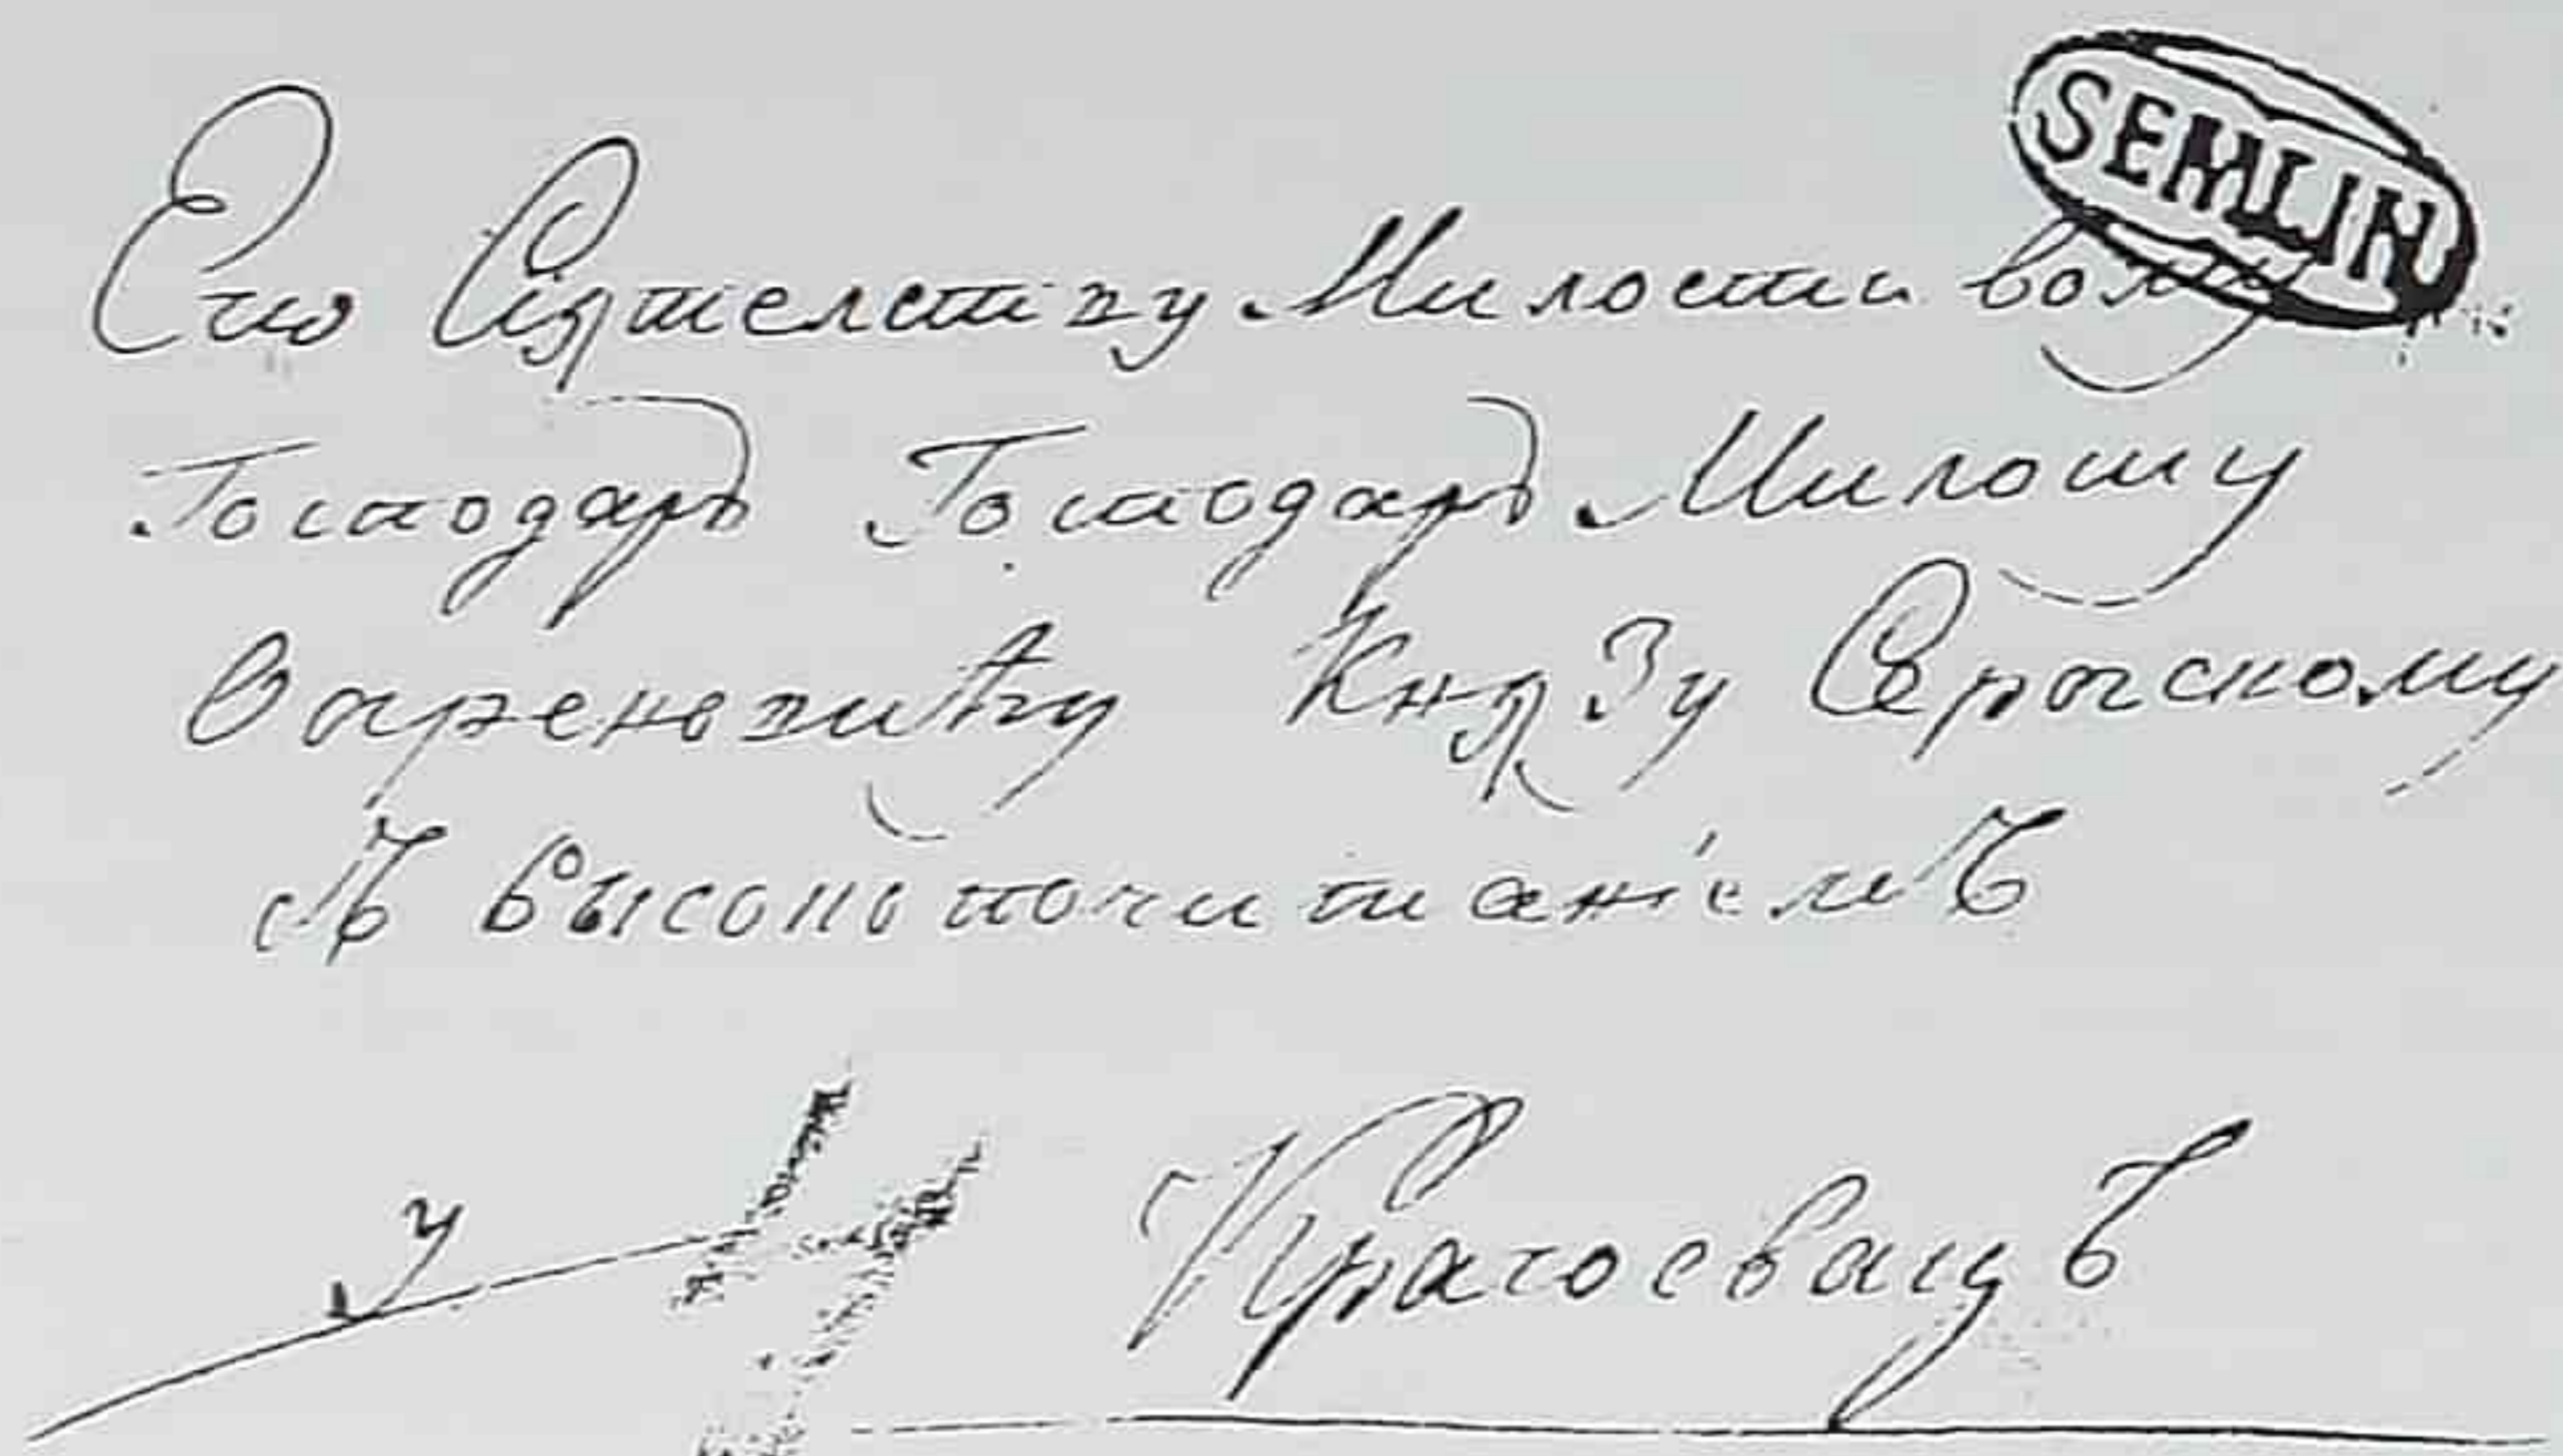 SEMLIN
Его Сіятелству Милостивому
Господарь Господарь Милошу
Обреновичу Князу Сербскому
съ высокопочитаніемъ
у Крагоевацъ